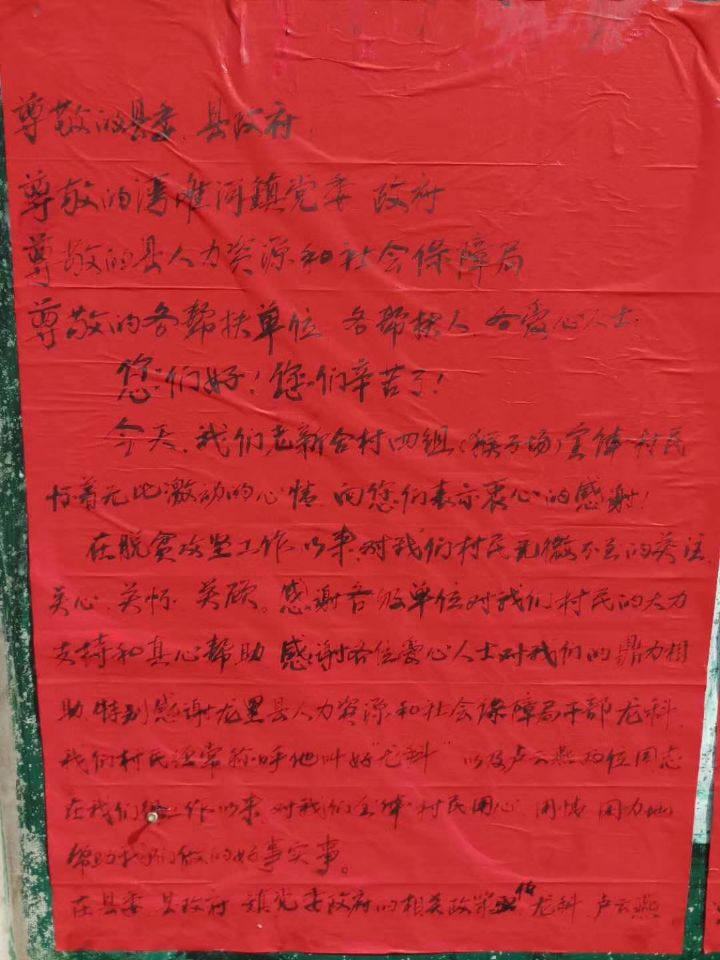 尊敬的县委、县政府
尊敬的湾滩河镇党委 政府
尊敬的县人力资源和社会保障局
尊敬的各帮扶单位 各帮扶人 各爱心人士:
您们好!您们辛苦了!
今天,我们老新合村四组(猴子场)全体村民
怀着无比激动的心情 向您们表示衷心的感谢!
在脱贫攻坚工作以来,对我们村民无微不至的关注
关心、关怀 关顾。感谢各级单位对我们村民的大力
支持和真心帮助 感谢各位爱心人士对我们的鼎力相
助 特别感谢龙里县人力资源和社会保障局干部龙科
我们村民经常称呼他叫好“龙科” 以及卢云燕两位同志
在我们组工作以来 对我们全体村民用心 用情 用力地
帮助我们做的好事实事。
在县委 县政府 镇党委政府的相关政策 龙科 卢云燕